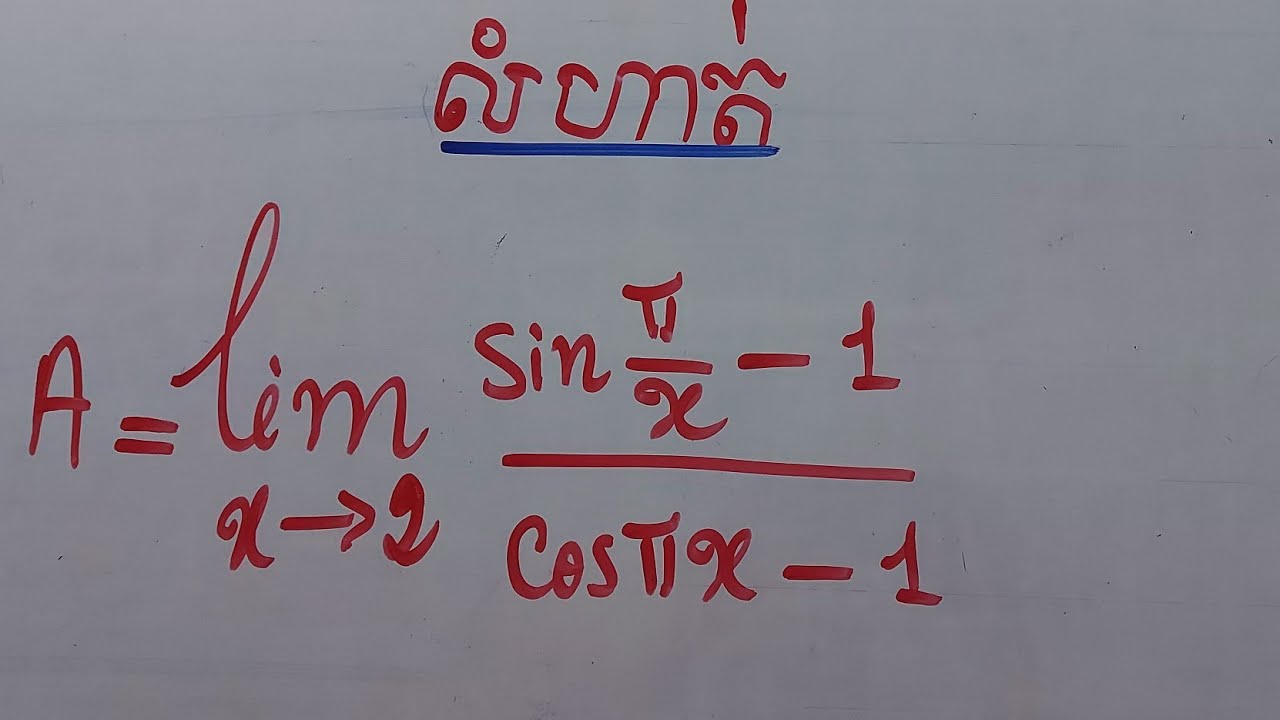 លំហាត់
A = lim x→2 (sin π/x − 1) / (cos πx − 1)